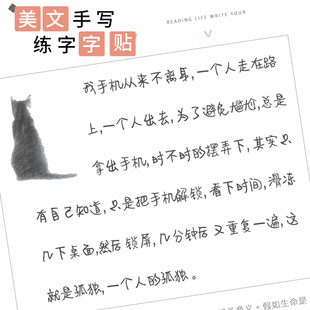 美文手写
练字字贴
READING LIFE WRITE YOUR
我手机从来不离身,一个人走在路
上,一个人出去,为了避免尴尬,总是
拿出手机,时不时的摆弄下,其实只
有自己知道,只是把手机解锁,看下时间,滑冻
几下桌面,然后锁屏,几分钟后又重复一遍,这
就是孤独,一个人的孤独。
意义。假如生命是